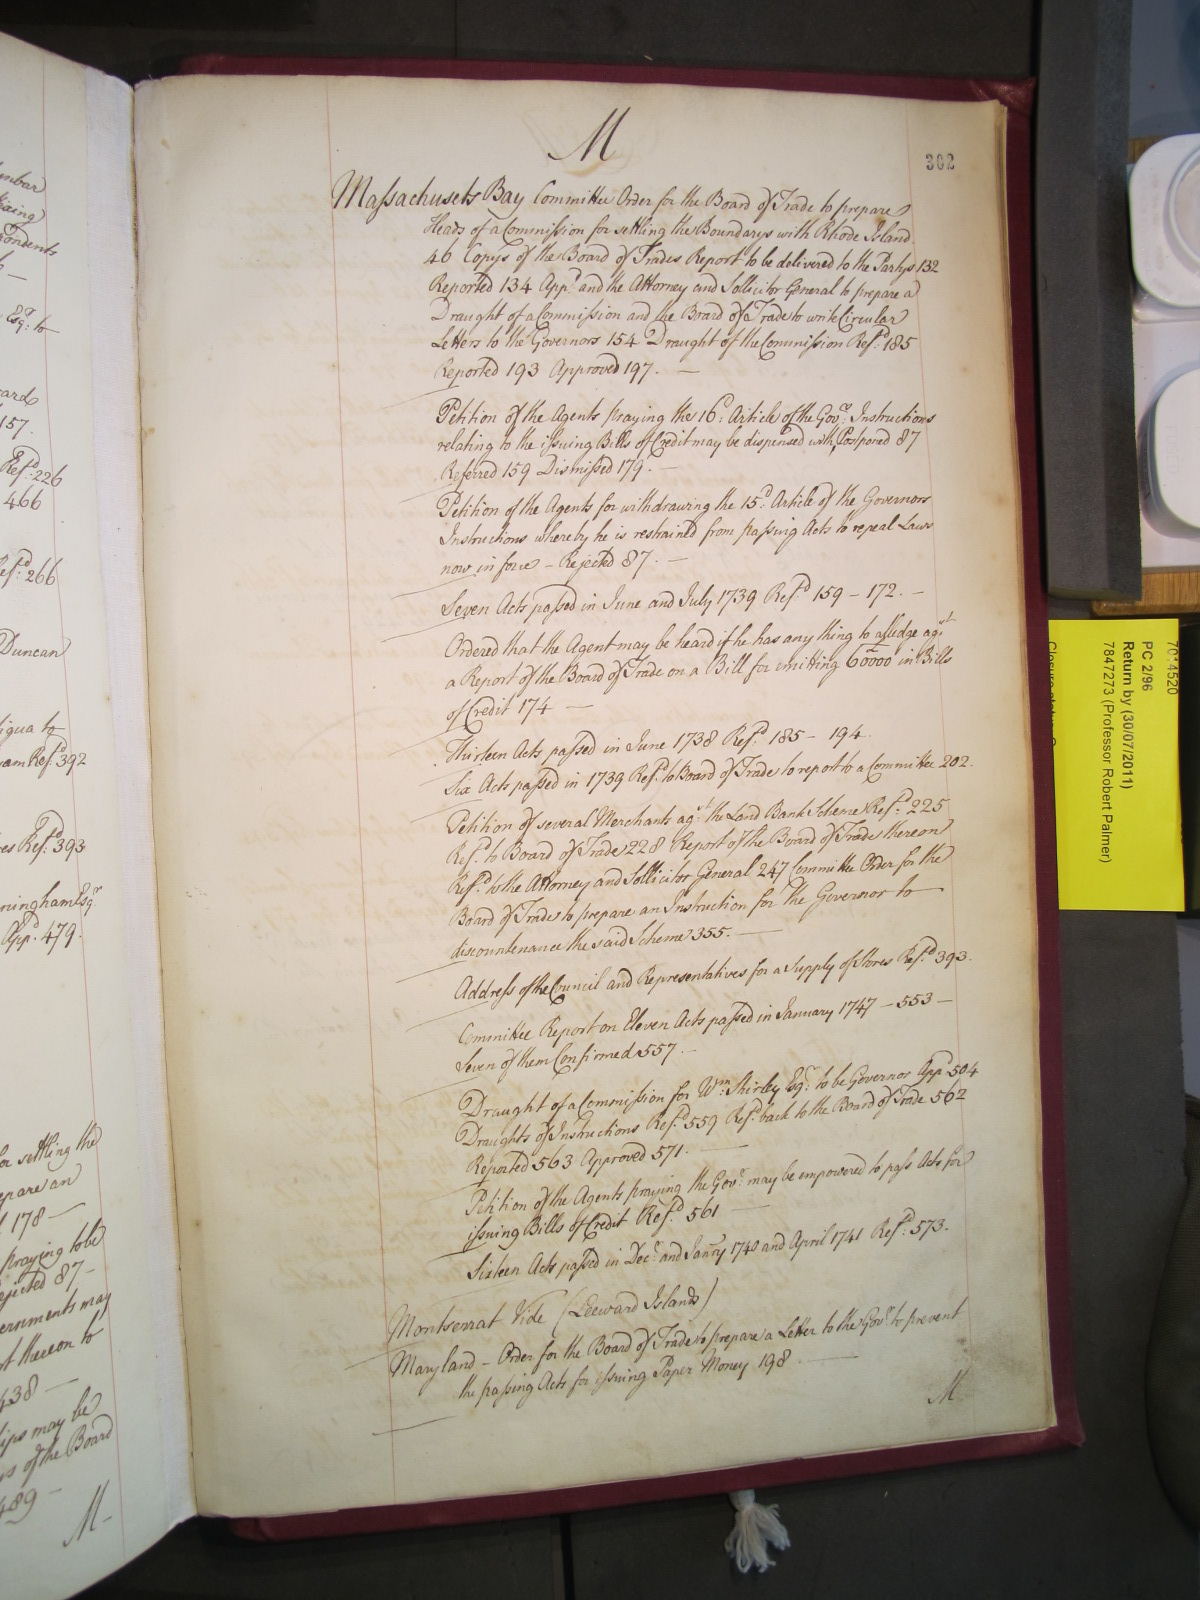 M
302
Massachusets Bay Committee Order for the Board of Trade to prepare
Heads of a Commission for settling the Boundarys with Rhode Island
46 Copys of the Board of Trades Report to be delivered to the Partys 132
Reported 134 Appd. and the Attorney and Sollicitor General to prepare a
Draught of a Commission and the Board of Trade to write Circular
Letters to the Governors 154 Draught of the Commission Refd. 185
Reported 193 Approved 197. —
Petition of the Agents praying the 16th. Article of the Govrs. Instructions
relating to the issuing Bills of Credit may be dispensed with, Postponed 87
Referred 159 Dismissed 179. —
Petition of the Agents for withdrawing the 15th. Article of the Governors
Instructions whereby he is restrained from passing Acts to repeal Laws
now in force – Rejected 87. —
Seven Acts passed in June and July 1739 Refd. 159 – 172. –
Ordered that the Agent may be heard if he has any thing to alledge agst.
a Report of the Board of Trade on a Bill for emitting 60000 in Bills
of Credit 174 —
Thirteen Acts passed in June 1738 Refd. 185 – 194.
Six Acts passed in 1739 Refd. to Board of Trade to report to a Committee 202.
Petition of several Merchants agst. the Land Bank Scheme Refd. 225
Refd. to Board of Trade 228 Report of the Board of Trade thereon
Refd. to the Attorney and Sollicitor General 247 Committee Order for the
Board of Trade to prepare an Instruction for the Governor to
discountenance the said Scheme 355. —
Address of the Council and Representatives for a Supply of Stores Refd. 393.
Committee Report on Eleven Acts passed in January 1747 – 553 –
Seven of them Confirmed 557 –
Draught of a Commission for Wm. Shirley Esqr. to be Governor Appd. 504
Draughts of Instructions Refd. 559 Refd. back to the Board of Trade 562
Reported 563 Approved 571. —
Petition of the Agents praying the Govr. may be empowered to pass Acts for
issuing Bills of Credit Refd. 561 —
Sixteen Acts passed in Decr. and Janry 1740 and April 1741 Refd. 573.
Montserrat Vide (Leeward Islands)
Maryland – Order for the Board of Trade to prepare a Letter to the Govr. to prevent
the passing Acts for issuing Paper Money 198. —
M
Esqr. to
157.
Refd. 226
466
Refd. 266
Duncan
Refd. 392
Refd. 393
Appd. 479.
for settling the
prepare an
178 —
praying to be
Rejected 87 –
may
thereon to
438 —
may be
of the Board
489 –
M–
7014520
PC 2/96
Return by (30/07/2011)
7847273 (Professor Robert Palmer)